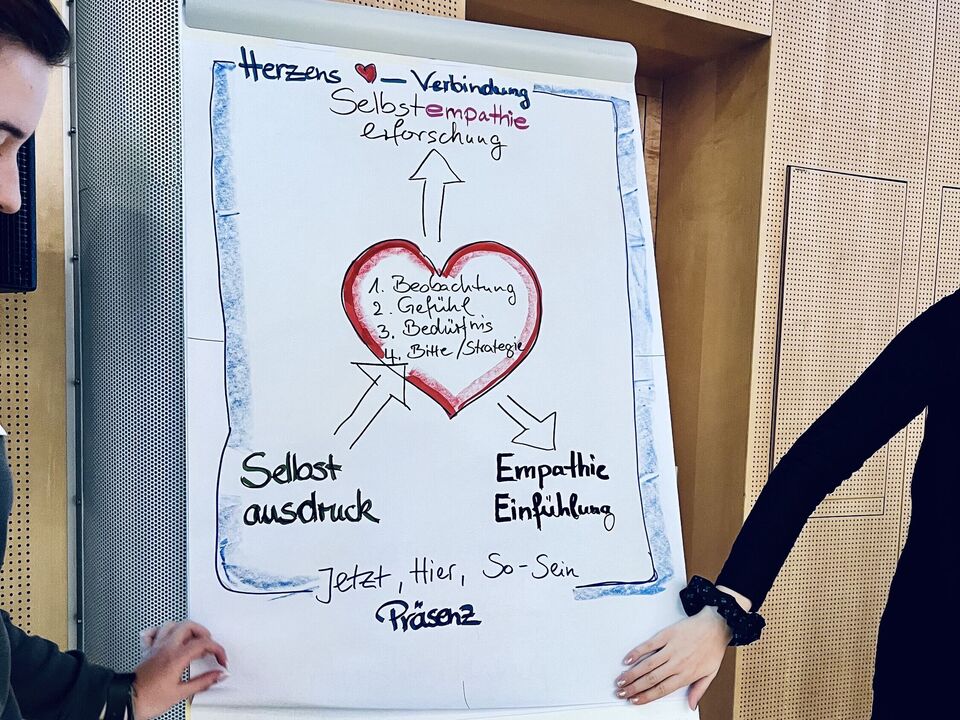 Herzens ❤ – Verbindung
Selbstempathie
erforschung
1. Beobachtung
2. Gefühl
3. Bedürfnis
4. Bitte/Strategie
Selbst
ausdruck
Empathie
Einfühlung
Jetzt, Hier, So-Sein
Präsenz